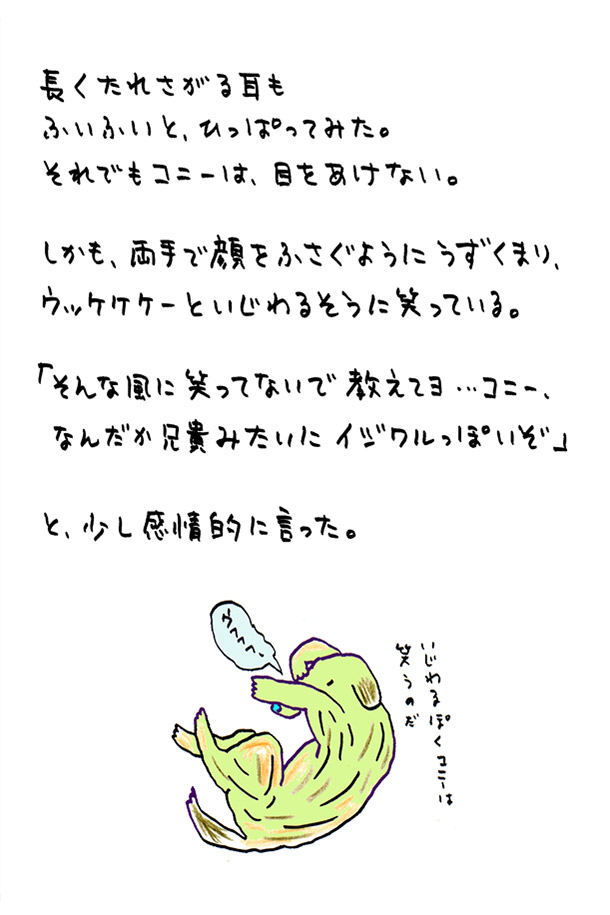 長くたれさがる耳も
ふいふいと、ひっぱってみた。
それでもコニーは、目をあけない。
しかも、両手で顔をふさぐようにうずくまり、
ウッケケケーといじわるそうに笑っている。
「そんな風に笑ってないで教えてヨ…コニー、
なんだか兄貴みたいにイジワルっぽいぞ」
と、少し感情的に言った。
ウヘヘヘー
いじわるぽくコニーは
笑うのだ